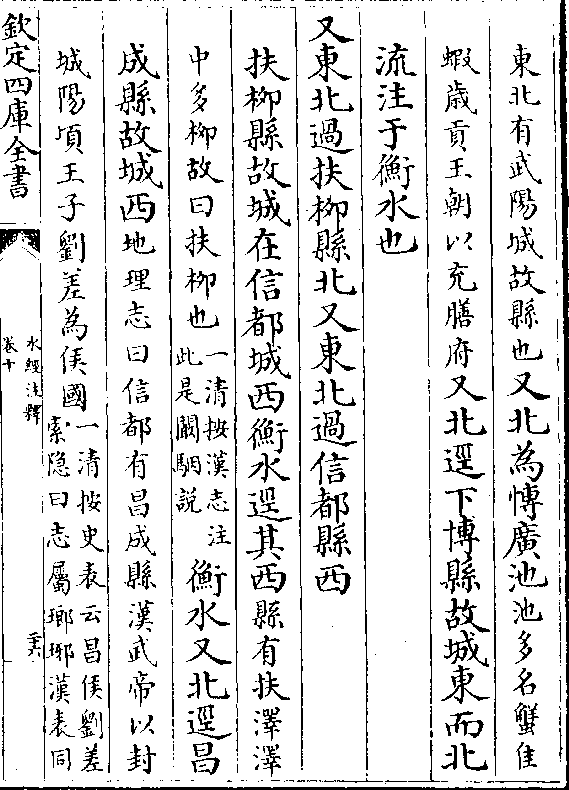 東北有武陽城故縣也又北為博廣池池多名蟹佳
蝦歲貢王朝以充膳府又北逕下博縣故城東而北
流注于衡水也
又東北過扶柳縣北又東北過信都縣西
扶柳縣故城在信都城西衡水逕其西縣有扶澤澤
中多柳故曰扶柳也一清按漢志注
此是闞駰說
衡水又北逕昌
成縣故城西地理志曰信都有昌成縣漢武帝以封
城陽頃王子劉差為侯國一清按史表云昌侯劉差
索隱曰志屬瑯琊漢表同
欽定四庫全書
水經注釋
卷十